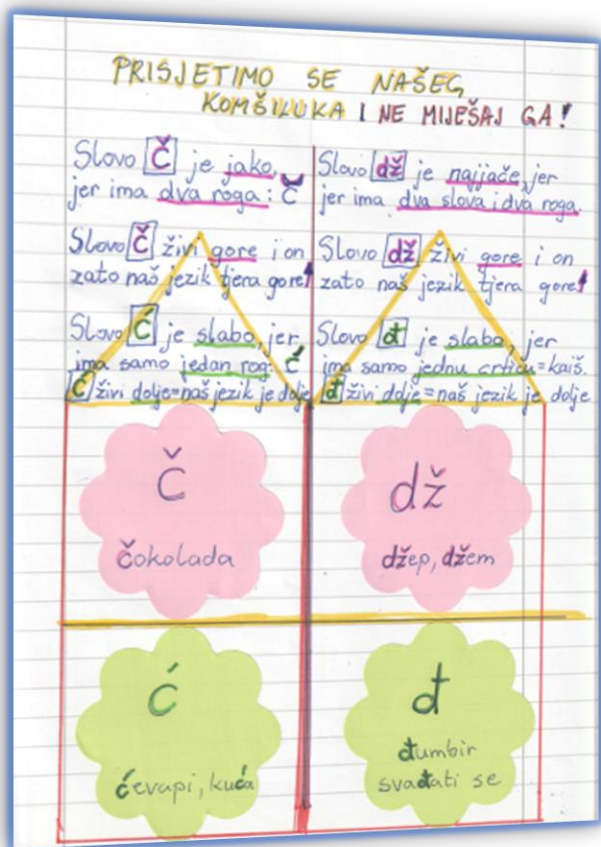 PRISJETIMO SE NAŠEG
KOMŠILUKA I NE MIJEŠAJ GA!
Slovo Č je jako,
jer ima dva roga: Č
Slovo Č živi gore i on
zato naš jezik tjera gore!
Slovo Ć je slabo, jer
ima samo jedan rog: Ć
Ć živi dolje=naš jezik je dolje
Slovo dž je najjače, jer
jer ima dva slova i dva roga
Slovo dž živi gore i on
zato naš jezik tjera gore!
Slovo đ je slabo, jer
ima samo jednu crticu=kaiš.
đ živi dolje=naš jezik je dolje
Č
čokolada
dž
džep, džem
ć
ćevapi, kuća
đ
đumbir
svađati se